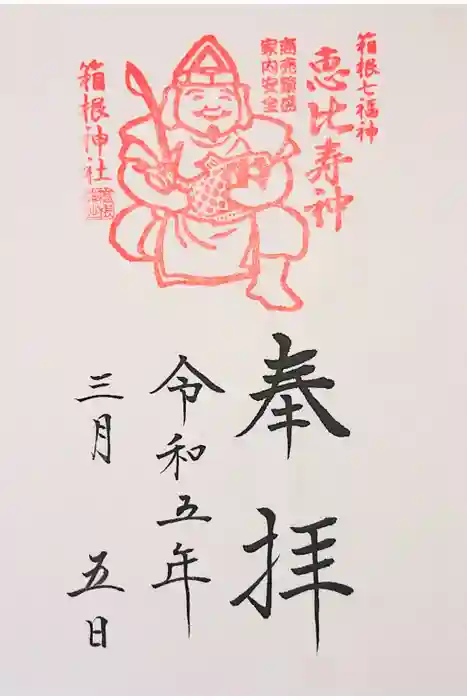 箱根七福神
恵比寿神
商売繁盛
家内安全
箱根神社
奉拝
令和五年
三月 五日